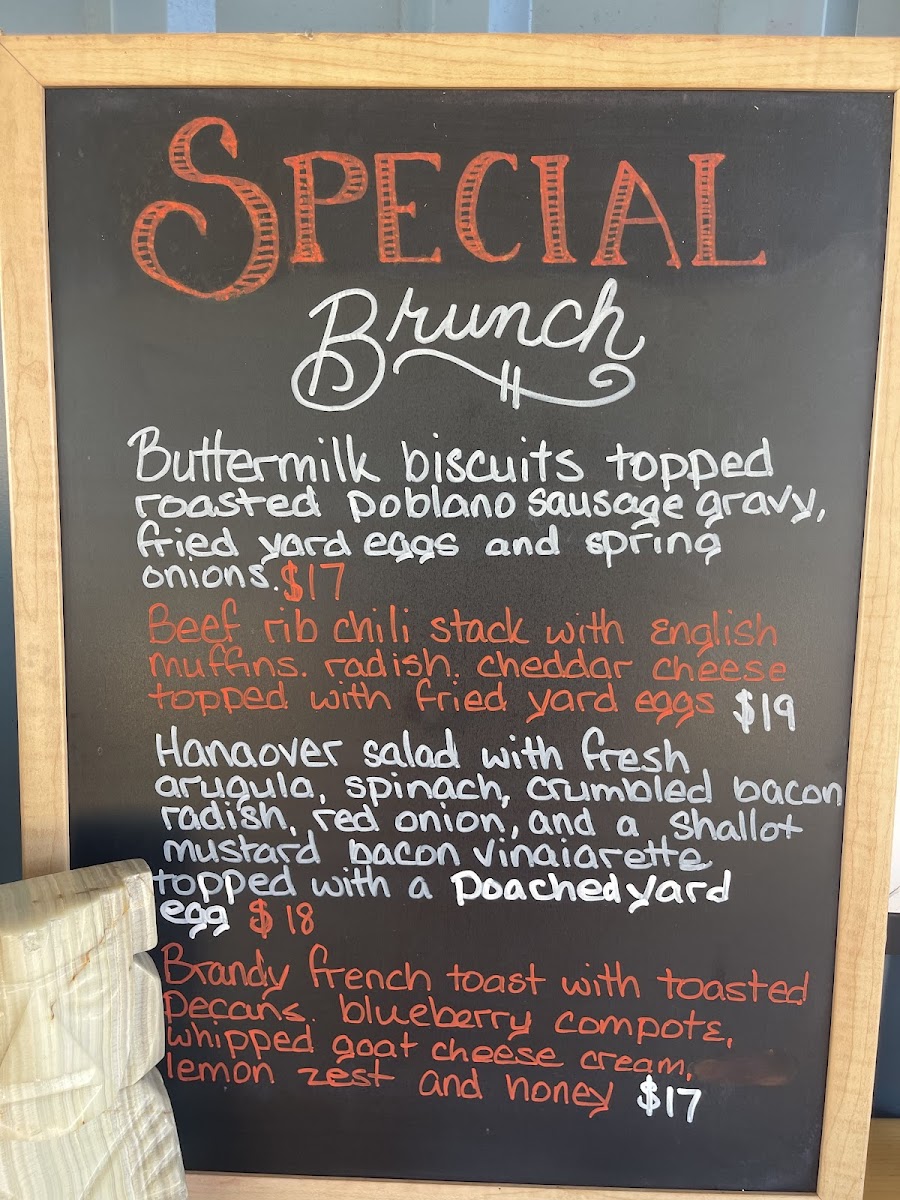 SPECIAL
Brunch
Buttermilk biscuits topped
roasted poblano sausage gravy,
fried yard eggs and spring
onions. $17
Beef rib chili stack with english
muffins. radish. cheddar cheese
topped with fried yard eggs $19
Hangover salad with fresh
arugula, spinach, crumbled bacon
radish, red onion, and a shallot
mustard bacon vinaiarette
topped with a poached yard
egg $18
Brandy french toast with toasted
pecans. blueberry compote,
whipped goat cheese cream,
lemon zest and honey $17